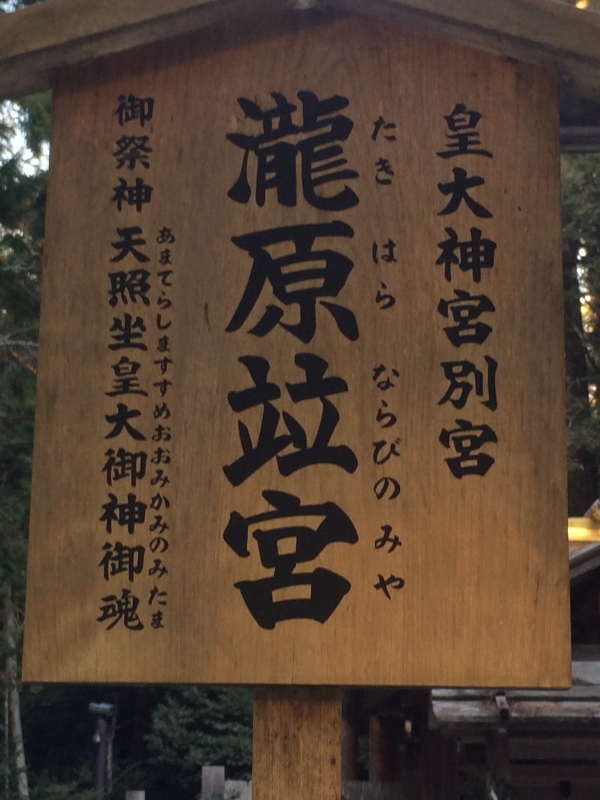 皇大神宮別宮
たきはらならびのみや
瀧原竝宮
あまてらしますすめおおみかみのみたま
御祭神 天照坐皇大御神御魂